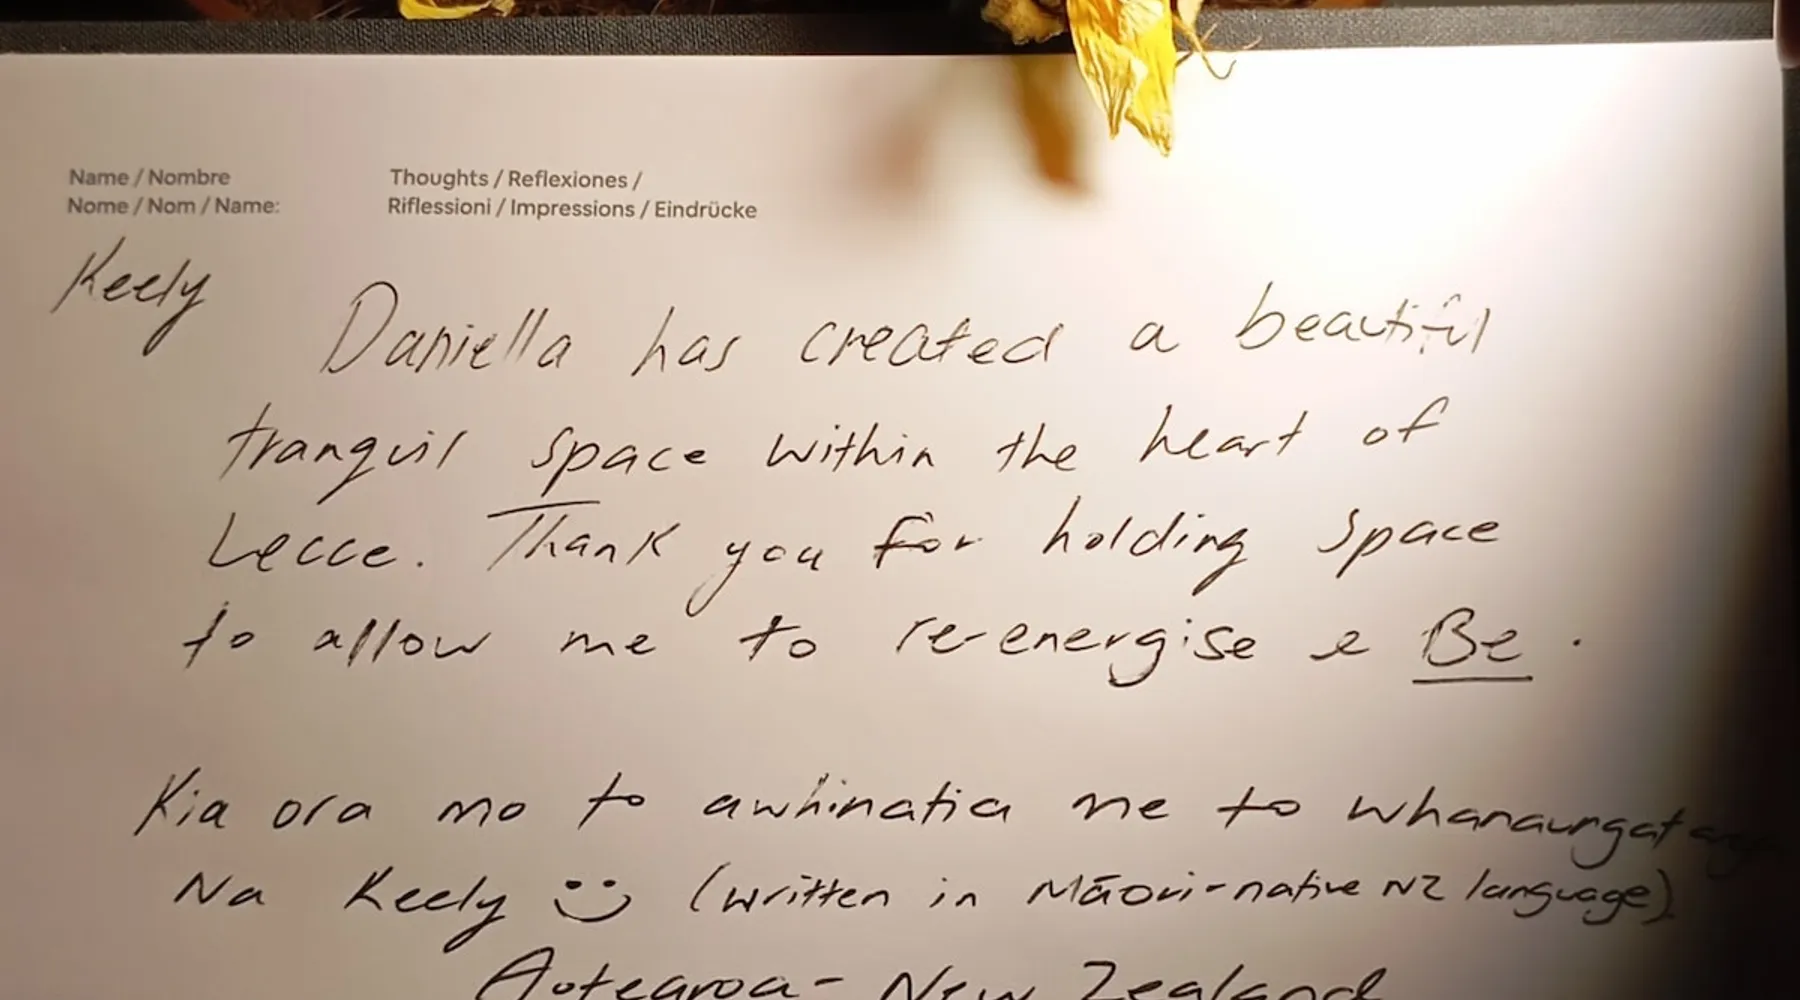 Name / Nombre
Nome / Nom / Name:
Thoughts / Reflexiones /
Riflessioni / Impressions / Eindrücke
Keely
Daniella has created a beautiful
tranquil space within the heart of
Lecce. Thank you for holding space
to allow me to re-energise & Be.
Kia ora mo to awhinatia me to
Na Keely (written in Māori-native NZ language)
Aotearoa - New Zealand